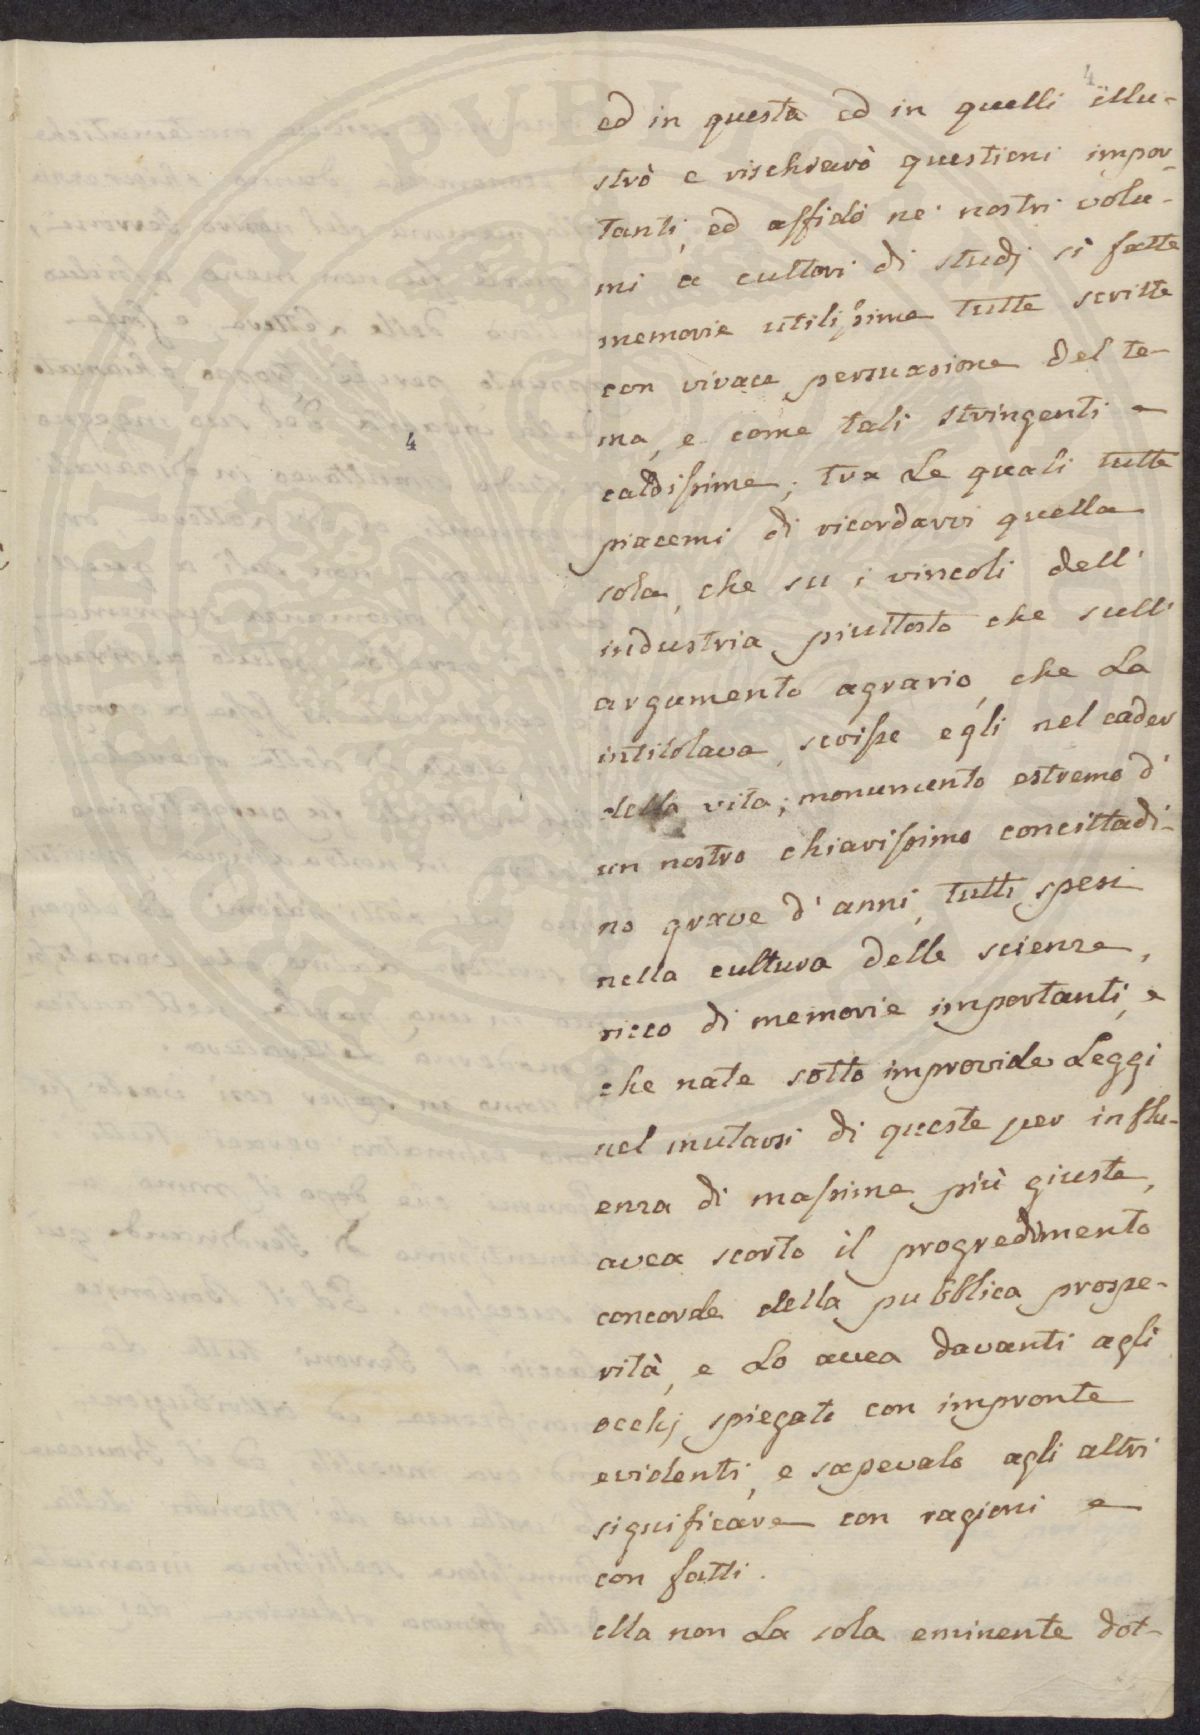 4
ed in questa ed in quelli illu-
strò e rischiarò questioni impor-
tanti, ed affidò ne' nostri volu-
mi a cultori di studj sì fatte
memorie utilissime tutte scritte
con vivace persuasione del te-
ma, e come tali stringenti e
caldissime; tra le quali tutte
piacemi di ricordarvi quella
sola, che su i vincoli dell'
industria piuttosto che sull'
argumento agrario, che la
intitolava, scrisse egli nel cader
della vita; monumento estremo d'
un nostro chiarissimo concittadi-
no grave d'anni, tutti spesi
nella cultura delle scienze,
ricco di memorie importanti, e
che nate sotto improvide leggi
nel mutarsi di queste per influ-
enza di massime più giuste,
avea scorto il progredimento
concorde della pubblica prospe-
rità, e lo avea davanti agli
occhj spiegato con impronte
evidenti, e sapevalo agli altri
significare con ragioni e
con fatti.
Ma non la sola eminente dot-
4